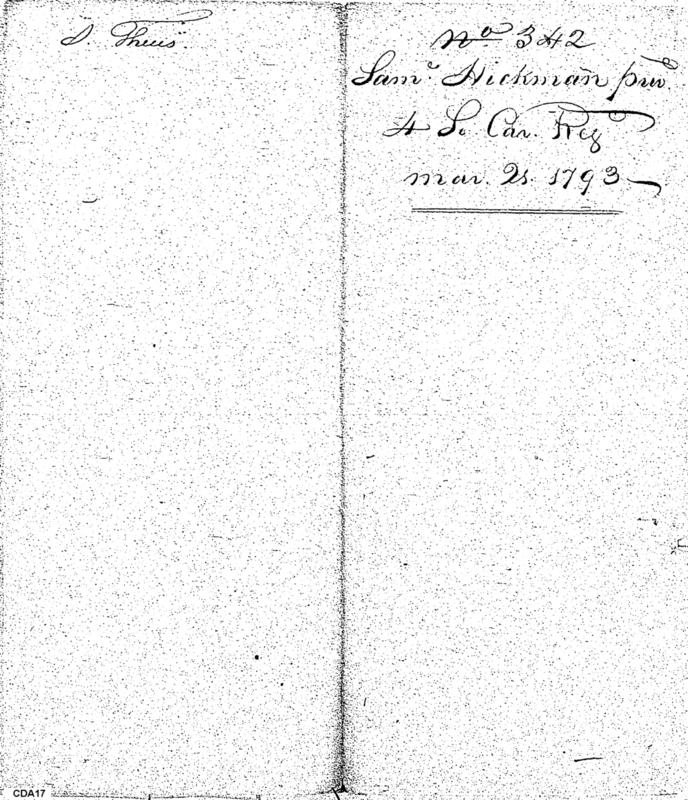 S. Theus.
No 342
Samr. Hickman priv.
4 So Car. Reg
mar. 21. 1793
CDA17